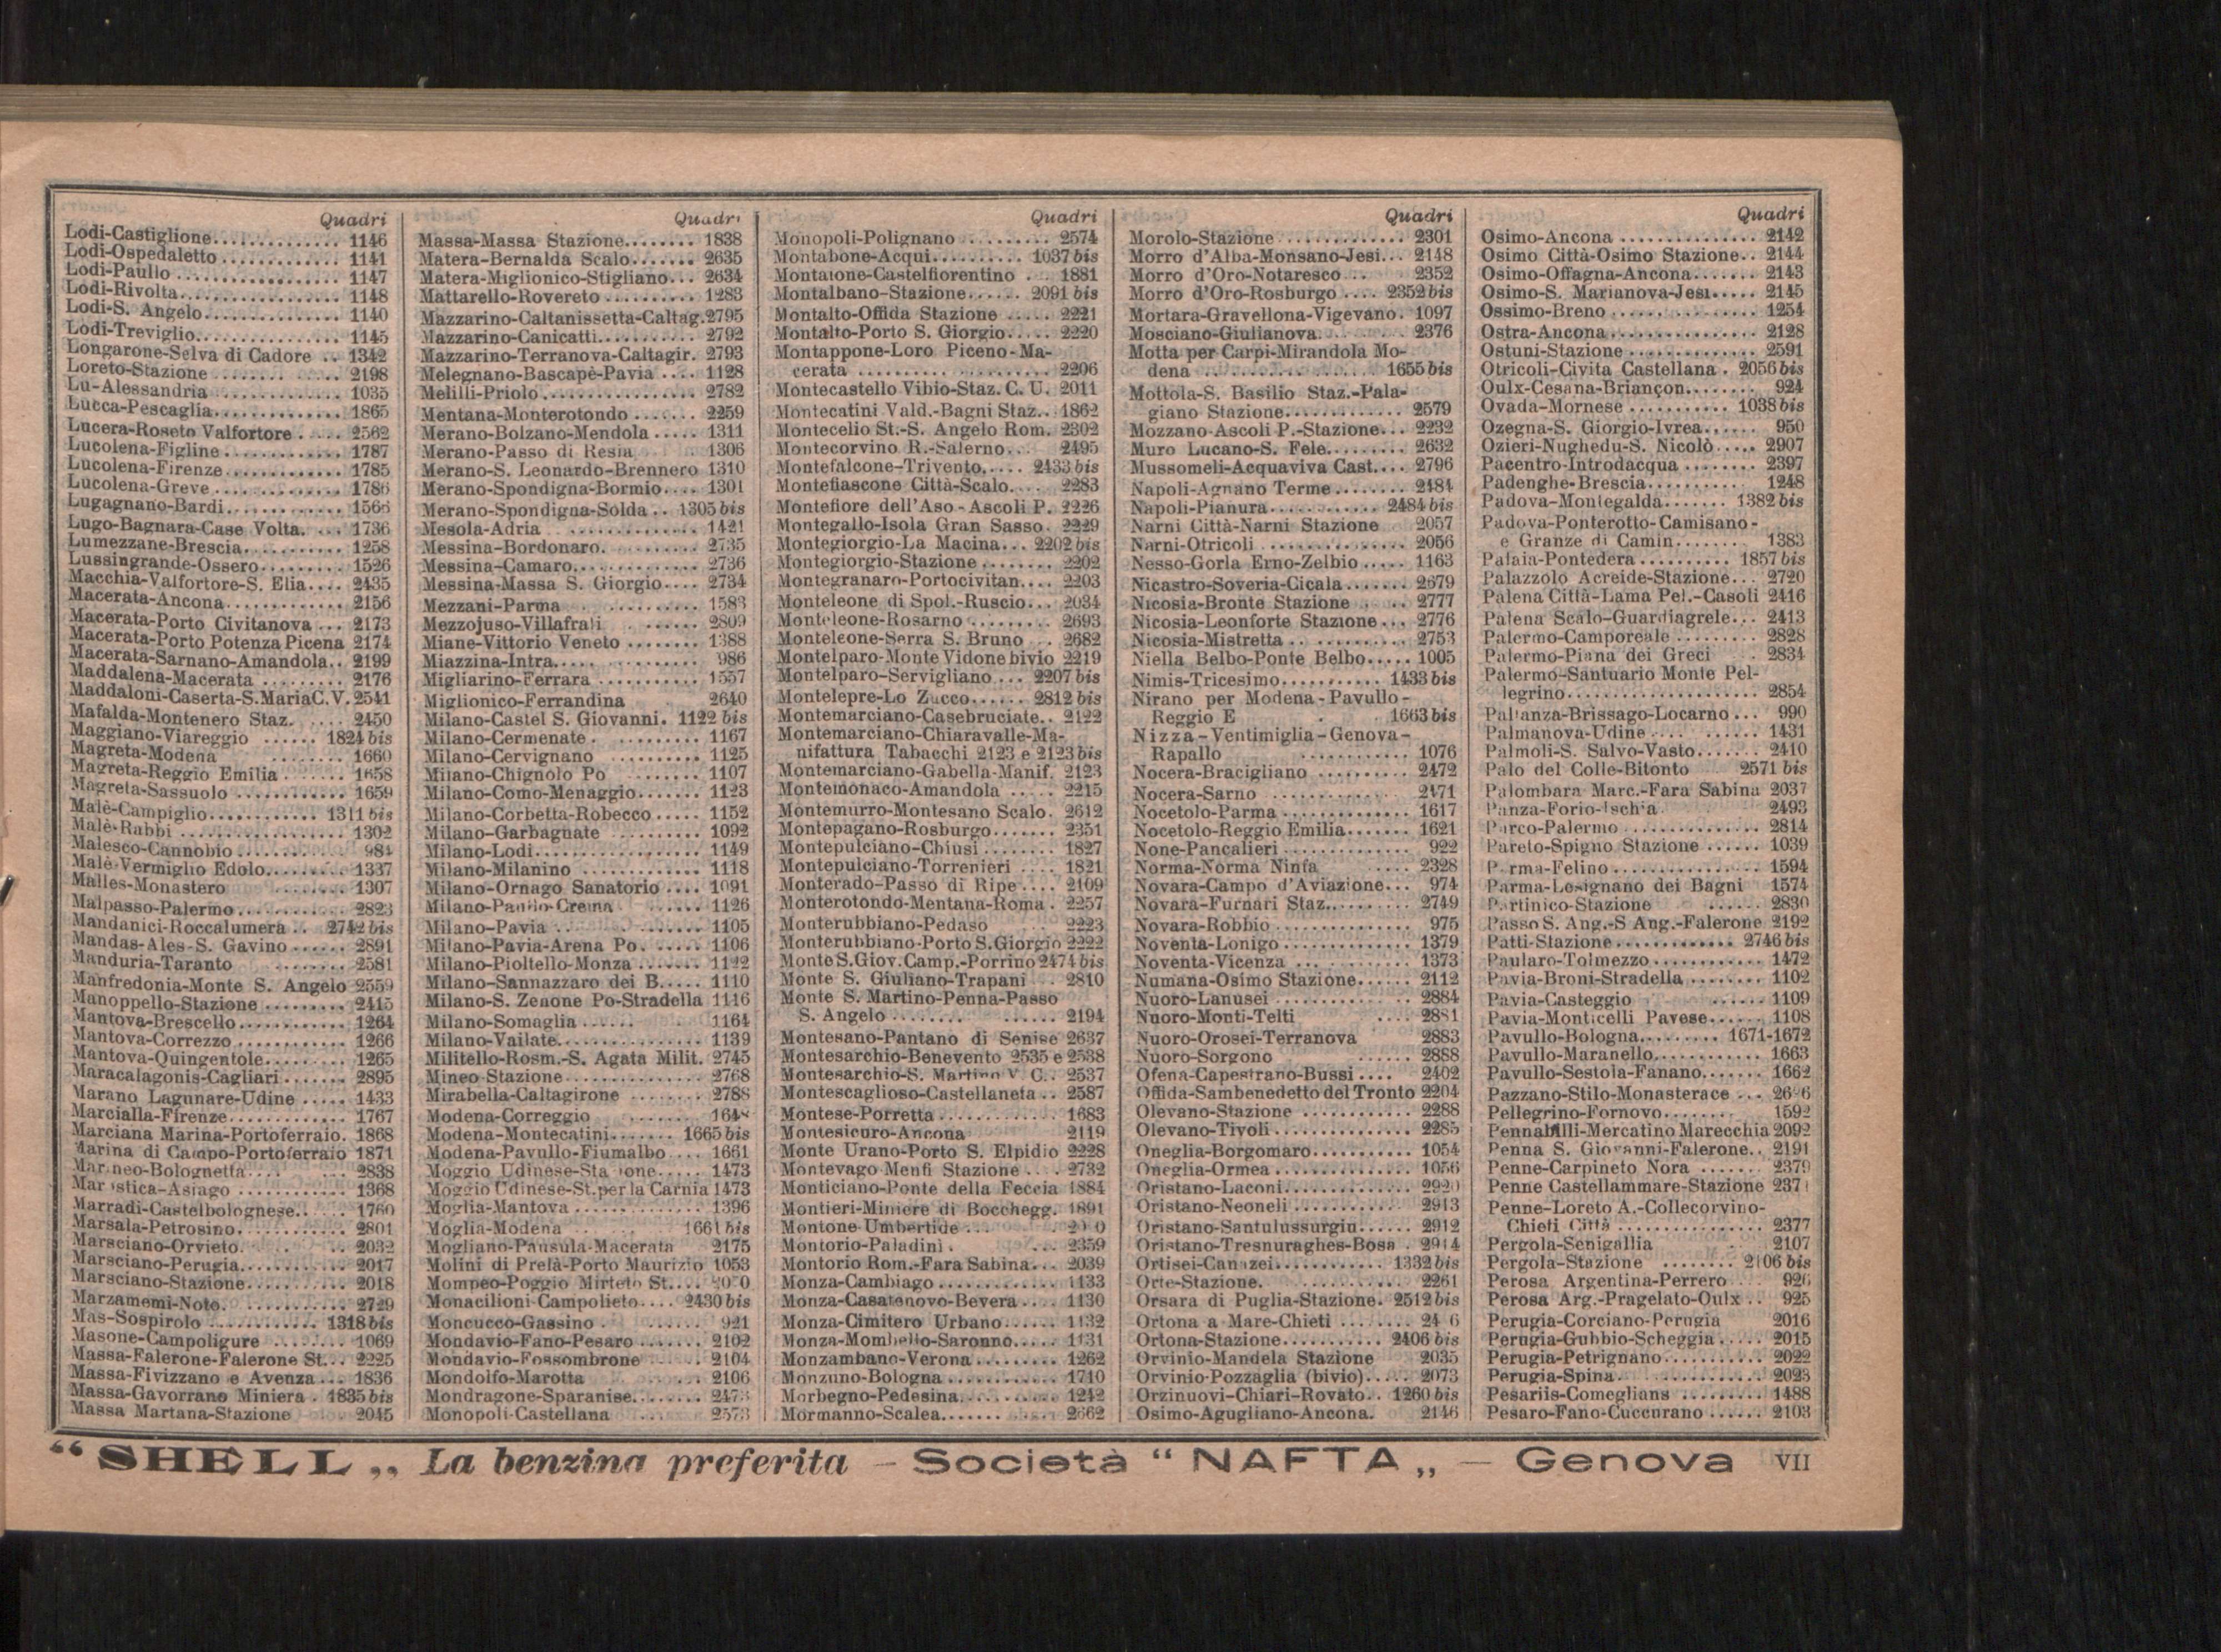 Quadri
Lodi-Castiglione.............. 1146
Lodi-Ospedaletto............. 1141
Lodi-Paullo.................. 1147
Lodi-Rivolta.................. 1148
Lodi-S. Angelo............... 1140
Lodi-Treviglio................ 1145
Longarone-Selva di Cadore .. 1342
Loreto-Stazione ............. 2198
Lu-Alessandria ............... 1035
Lucca-Pescaglia.............. 1865
Lucera-Roseto Valfortore ..... 2562
Lucolena-Figline............. 1787
Lucolena-Firenze............. 1785
Lucolena-Greve.............. 1786
Lugagnano-Bardi............. 1566
Lugo-Bagnara-Case Volta. ... 1736
Lumezzane-Brescia........... 1258
Lussingrande-Ossero......... 1526
Macchia-Valfortore-S. Elia.... 2435
Macerata-Ancona............. 2156
Macerata-Porto Civitanova ... 2173
Macerata-Porto Potenza Picena 2174
Macerata-Sarnano-Amandola.. 2199
Maddalena-Macerata ......... 2176
Maddaloni-Caserta-S.MariaC.V. 2541
Mafalda-Montenero Staz. .... 2450
Maggiano-Viareggio ...... 1824 bis
Magreta-Modena ........ 1660
Magreta-Reggio Emilia ...... 1658
Magreta-Sassuolo ............ 1659
Malè-Campiglio............ 1311 bis
Malè-Rabbi .................. 1302
Malesco-Cannobio ............ 984
Malè-Vermiglio Edolo......... 1337
Malles-Monastero ........ 1307
Malpasso-Palermo............ 2823
Mandanici-Roccalumera .. 2742 bis
Mandas-Ales-S. Gavino ...... 2891
Manduria-Taranto ........ 2581
Manfredonia-Monte S. Angelo 2559
Manoppello-Stazione ......... 2415
Mantova-Brescello............ 1264
Mantova-Correzzo ............ 1266
Mantova-Quingentole......... 1265
Maracalagonis-Cagliari....... 2895
Marano Lagunare-Udine ..... 1433
Marcialla-Firenze............. 1767
Marciana Marina-Portoferraio. 1868
Marina di Campo-Portoferraio 1871
Marineo-Bolognetta.... 2838
Marostica-Asiago ............ 1368
Marradi-Castelbolognese.. . 1760
Marsala-Petrosino............ 2801
Marsciano-Orvieto. .. 2032
Marsciano-Perugia............ 2017
Marsciano-Stazione........... 2018
Marzamemi-Noto. ............ 2729
Mas-Sospirolo ............ 1318 bis
Masone-Campoligure ........ 1069
Massa-Falerone-Falerone St... 2225
Massa-Fivizzano e Avenza... 1836
Massa-Gavorrano Miniera . 1835 bis
Massa Martana-Stazione 2045
Quadri
Massa-Massa Stazione........ 1838
Matera-Bernalda Scalo....... 2635
Matera-Miglionico-Stigliano... 2634
Mattarello-Rovereto .......... 1283
Mazzarino-Caltanissetta-Caltag. 2795
Mazzarino-Canicattì........... 2792
Mazzarino-Terranova-Caltagir. 2793
Melegnano-Bascapè-Pavia .... 1128
Melilli-Priolo................. 2782
Mentana-Monterotondo ....... 2259
Merano-Bolzano-Mendola ..... 1311
Merano-Passo di Resia 1306
Merano-S. Leonardo-Brennero 1310
Merano-Spondigna-Bormio.... 1301
Merano-Spondigna-Solda .. 1305 bis
Mesola-Adria ............. 1421
Messina-Bordonaro. ......... 2735
Messina-Camaro.............. 2736
Messina-Massa S. Giorgio.... 2734
Mezzani-Parma .......... 1583
Mezzojuso-Villafrati ...... 2809
Miane-Vittorio Veneto ........ 1388
Miazzina-Intra................ 986
Migliarino-Ferrara ........... 1557
Miglionico-Ferrandina 2640
Milano-Castel S. Giovanni. 1122 bis
Milano-Cermenate. ......... 1167
Milano-Cervignano .......... 1125
Milano-Chignolo Po ........ 1107
Milano-Como-Menaggio....... 1123
Milano-Corbetta-Robecco..... 1152
Milano-Garbagnate ......... 1092
Milano-Lodi.................. 1149
Milano-Milanino ............. 1118
Milano-Ornago Sanatorio .... 1091
Milano-Paullo-Crema ...... 1126
Milano-Pavia .. ....... 1105
Milano-Pavia-Arena Po. ..... 1106
Milano-Pioltello-Monza ....... 1122
Milano-Sannazzaro dei B..... 1110
Milano-S. Zenone Po-Stradella 1116
Milano-Somaglia ...... 1164
Milano-Vailate................ 1139
Militello-Rosm.-S. Agata Milit. 2745
Mineo-Stazione............... 2768
Mirabella-Caltagirone ........ 2788
Modena-Correggio ......
Modena-Montecatini....... 1665 bis
Modena-Pavullo-Fiumalbo.... 1661
Moggio Udinese-Stazione.... 1473
Moggio Udinese-St.per la Carnia 1473
Moglia-Mantova ............. 1396
Moglia-Modena 1661 bis
Mogliano-Pausula-Macerata 2175
Molini di Prelà-Porto Maurizio 1053
Mompeo-Poggio Mirteto St....
Monacilioni-Campolieto.... 2430 bis
Moncucco-Gassino . ...... 921
Mondavio-Fano-Pesaro ....... 2102
Mondavio-Fossombrone ..... 2104
Mondolfo-Marotta ...... 2106
Mondragone-Sparanise........
Monopoli-Castellana .... 2573
Quadri
Monopoli-Polignano ......... 2574
Montabone-Acqui.......... 1037 bis
Montaione-Castelfiorentino ... 1881
Montalbano-Stazione...... 2091 bis
Montalto-Offida Stazione ..... 2221
Montalto-Porto S. Giorgio..... 2220
Montappone-Loro Piceno-Ma-
cerata .................... 2206
Montecastello Vibio-Staz. C. U. 2011
Montecatini Vald.-Bagni Staz.. 1862
Montecelio St.-S. Angelo Rom. 2302
Montecorvino R.-Salerno... 2495
Montefalcone-Trivento..... 2433 bis
Montefiascone Città-Scalo.... 2283
Montefiore dell'Aso-Ascoli P. 2226
Montegallo-Isola Gran Sasso. 2229
Montegiorgio-La Macina... 2202 bis
Montegiorgio-Stazione ........ 2202
Montegranaro-Portocivitan.... 2203
Monteleone di Spol.-Ruscio... 2034
Monteleone-Rosarno ......... 2693
Monteleone-Serra S. Bruno .. 2682
Montelparo-Monte Vidone bivio 2219
Montelparo-Servigliano ... 2207 bis
Montelepre-Lo Zucco...... 2812 bis
Montemarciano-Casebruciate.. 2122
Montemarciano-Chiaravalle-Ma-
nifattura Tabacchi 2123 e 2123 bis
Montemarciano-Gabella-Manif. 2123
Montemonaco-Amandola ..... 2215
Montemurro-Montesano Scalo. 2612
Montepagano-Rosburgo....... 2351
Montepulciano-Chiusi ........ 1827
Montepulciano-Torrenieri .... 1821
Monterado-Passo di Ripe.... 2109
Monterotondo-Mentana-Roma. 2257
Monterubbiano-Pedaso ...... 2223
Monterubbiano-Porto S.Giorgio 2222
Monte S.Giov.Camp.-Porrino 2474 bis
Monte S. Giuliano-Trapani .. 2810
Monte S. Martino-Penna-Passo
S. Angelo ........ ...... 2194
Montesano-Pantano di Senise 2637
Montesarchio-Benevento 2535 e 2538
Montesarchio-S. Martino V. C.. 2537
Montescaglioso-Castellaneta.. 2587
Montese-Porretta............. 1683
Montesicuro-Ancona 2119
Monte Urano-Porto S. Elpidio 2228
Montevago-Menfi Stazione.... 2732
Monticiano-Ponte della Feccia 1884
Montieri-Miniere di Bocchegg. 1891
Montone-Umbertide...
Montorio-Paladini. ... 2359
Montorio Rom.-Fara Sabina... 2039
Monza-Cambiago ............. 1133
Monza-Casatenovo-Bevera.... 1130
Monza-Cimitero Urbano...... 1132
Monza-Mombello-Saronno..... 1131
Monzambano-Verona ......... 1262
Monzuno-Bologna ............ 1710
Morbegno-Pedesina........... 1242
Mormanno-Scalea............ 2662
Quadri
Morolo-Stazione ............. 2301
Morro d'Alba-Monsano-Jesi... 2148
Morro d'Oro-Notaresco ... 2352
Morro d'Oro-Rosburgo .... 2352 bis
Mortara-Gravellona-Vigevano. 1097
Mosciano-Giulianova.......... 2376
Motta per Carpi-Mirandola Mo-
dena .................. 1655 bis
Mottola-S. Basilio Staz.-Pala-
giano Stazione............. 2579
Mozzano-Ascoli P.-Stazione... 2232
Muro Lucano-S. Fele......... 2632
Mussomeli-Acquaviva Cast.... 2796
Napoli-Agnano Terme........ 2484
Napoli-Pianura............ 2484 bis
Narni Città-Narni Stazione 2057
Narni-Otricoli ............... 2056
Nesso-Gorla Erno-Zelbio ..... 1163
Nicastro-Soveria-Cicala....... 2679
Nicosia-Bronte Stazione .... 2777
Nicosia-Leonforte Stazione ... 2776
Nicosia-Mistretta ............ 2753
Niella Belbo-Ponte Belbo..... 1005
Nimis-Tricesimo........... 1433 bis
Nirano per Modena-Pavullo-
Reggio E . . 1663 bis
Nizza-Ventimiglia-Genova-
Rapallo ........... 1076
Nocera-Bracigliano .......... 2472
Nocera-Sarno ............ 2471
Nocetolo-Parma ............. 1617
Nocetolo-Reggio Emilia....... 1621
None-Pancalieri .............. 922
Norma-Norma Ninfa ..... 2328
Novara-Campo d'Aviazione... 974
Novara-Furnari Staz.......... 2749
Novara-Robbio .............. 975
Noventa-Lonigo ............. 1379
Noventa-Vicenza ............ 1373
Numana-Osimo Stazione...... 2112
Nuoro-Lanusei .............. 2884
Nuoro-Monti-Telti .... 2881
Nuoro-Orosei-Terranova 2883
Nuoro-Sorgono ...... 2888
Ofena-Capestrano-Bussi.... 2402
Offida-Sambenedetto del Tronto 2204
Olevano-Stazione ............ 2288
Olevano-Tivoli............... 2285
Oneglia-Borgomaro........... 1054
Oneglia-Ormea .............. 1056
Oristano-Laconi.............. 2920
Oristano-Neoneli ............ 2913
Oristano-Santulussurgiu...... 2912
Oristano-Tresnuraghes-Bosa . 2914
Ortisei-Canazei............ 1332 bis
Orte-Stazione. ........... 2261
Orsara di Puglia-Stazione. 2512 bis
Ortona a Mare-Chieti ........
Ortona-Stazione........... 2406 bis
Orvinio-Mandela Stazione 2035
Orvinio-Pozzaglia (bivio)..... 2073
Orzinuovi-Chiari-Rovato.. 1260 bis
Osimo-Agugliano-Ancona. 2146
Quadri
Osimo-Ancona ............... 2142
Osimo Città-Osimo Stazione.. 2144
Osimo-Offagna-Ancona....... 2143
Osimo-S. Marianova-Jesi..... 2145
Ossimo-Breno ............... 1254
Ostra-Ancona................ 2128
Ostuni-Stazione .............. 2591
Otricoli-Civita Castellana . 2056 bis
Oulx-Cesana-Briançon........ 924
Ovada-Mornese ........... 1038 bis
Ozegna-S. Giorgio-Ivrea...... 950
Ozieri-Nughedu-S. Nicolò..... 2907
Pacentro-Introdacqua ........ 2397
Padenghe-Brescia........... 1248
Padova-Montegalda....... 1382 bis
Padova-Ponterotto-Camisano-
e Granze di Camin....... 1383
Palaia-Pontedera .......... 1857 bis
Palazzolo Acreide-Stazione... 2720
Palena Città-Lama Pel.-Casoli 2416
Palena Scalo-Guardiagrele... 2413
Palermo-Camporeale ......... 2828
Palermo-Piana dei Greci .. 2834
Palermo-Santuario Monte Pel-
legrino.................... 2854
Pallanza-Brissago-Locarno ... 990
Palmanova-Udine .... ...... 1431
Palmoli-S. Salvo-Vasto....... 2410
Palo del Colle-Bitonto 2571 bis
Palombara Marc.-Fara Sabina 2037
Panza-Forio-Ischia. 2493
Parco-Palermo ............... 2814
Pareto-Spigno Stazione ...... 1039
Parma-Felino................ 1594
Parma-Lesignano dei Bagni 1574
Partinico-Stazione ...... 2830
Passo S. Ang.-S Ang.-Falerone 2192
Patti-Stazione............. 2746 bis
Paularo-Tolmezzo............ 1472
Pavia-Broni-Stradella ........ 1102
Pavia-Casteggio ...... 1109
Pavia-Monticelli Pavese...... 1108
Pavullo-Bologna......... 1671-1672
Pavullo-Maranello............ 1663
Pavullo-Sestola-Fanano....... 1662
Pazzano-Stilo-Monasterace ...
Pellegrino-Fornovo....... 1592
Pennabilli-Mercatino Marecchia 2092
Penna S. Giovanni-Falerone.. 2191
Penne-Carpineto Nora ....... 2379
Penne Castellammare-Stazione
Penne-Loreto A.-Collecorvino-
Chieti Città ................ 2377
Pergola-Senigallia .. 2107
Pergola-Stazione ........ 2106 bis
Perosa Argentina-Perrero 926
Perosa Arg.-Pragelato-Oulx .. 925
Perugia-Corciano-Perugia 2016
Perugia-Gubbio-Scheggia ..... 2015
Perugia-Petrignano........... 2022
Perugia-Spina. ............ 2023
Pesariis-Comeglians ......... 1488
Pesaro-Fano-Cuccurano ...... 2103
“SHELL„ La benzina preferita – Società “NAFTA„ – Genova VII